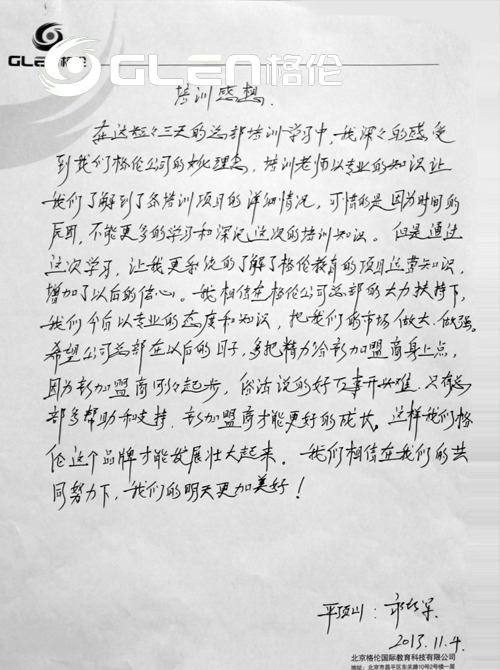 GLEN格伦
GLEN格伦
培训感想
在这短々三天的总部培训学习中,我深々的感受
到我们格伦公司的文化理念,培训老师以专业的知识让
我们了解到了各培训项目的详细情况,可惜的是因为时间的
原因,不能更多的学习和深记这次的培训知识。但是通过
这次学习,让我更系统的了解了格伦教育的项目运营知识,
增加了以后的信心。我相信在格伦公司总部的大力扶持下,
我们今后以专业的态度和知识,把我们的市场做大.做强。
希望公司总部在以后的日子,多把精力给新加盟商身上点,
因为新加盟商刚々起步,俗话说的好万事开头难.只有总
部多帮助和支持.新加盟商才能更好的成长。这样我们格
伦这个品牌才能发展壮大起来。我们相信在我们的共
同努力下,我们的明天更加美好!
平顶山:
2013.11.4
北京格伦国际教育科技有限公司
地址:北京昌平区东关路10号2号楼一层